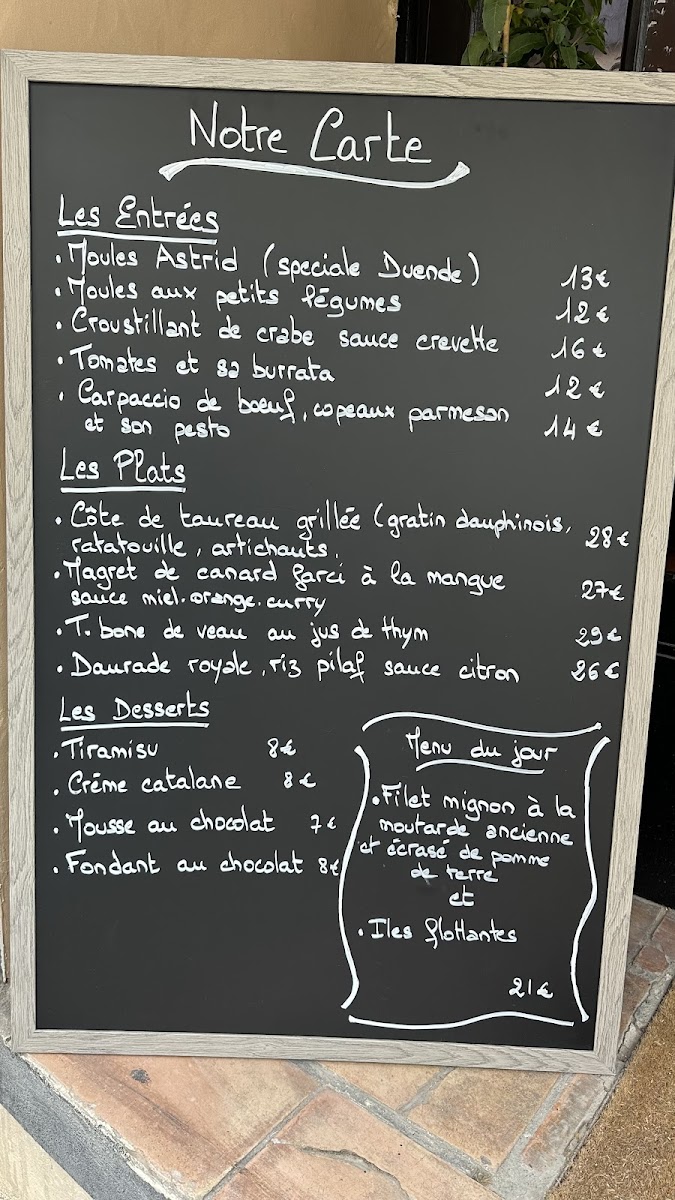 Notre Carte
Les Entrées
• Moules Astrid (speciale Duende) 13€
• Moules aux petits légumes 12€
• Croustillant de crabe sauce crevette 16€
• Tomates et sa burrata 12€
• Carpaccio de boeuf, copeaux parmesan
et son pesto 14€
Les Plats
• Côte de taureau grillée (gratin dauphinois, 28€
ratatouille, artichauts.
• Magret de canard farci à la mangue 27€
sauce miel.orange.curry
• T.bone de veau au jus de thym 29€
• Daurade royale, riz pilaf sauce citron 26€
Les Desserts
• Tiramisu 8€
• Créme catalane 8€
• Mousse au chocolat 7€
• Fondant au chocolat 8€
Menu du jour
• Filet mignon à la
moutarde ancienne
et écrasé de pomme
de terre
et
• Iles flottantes
21€